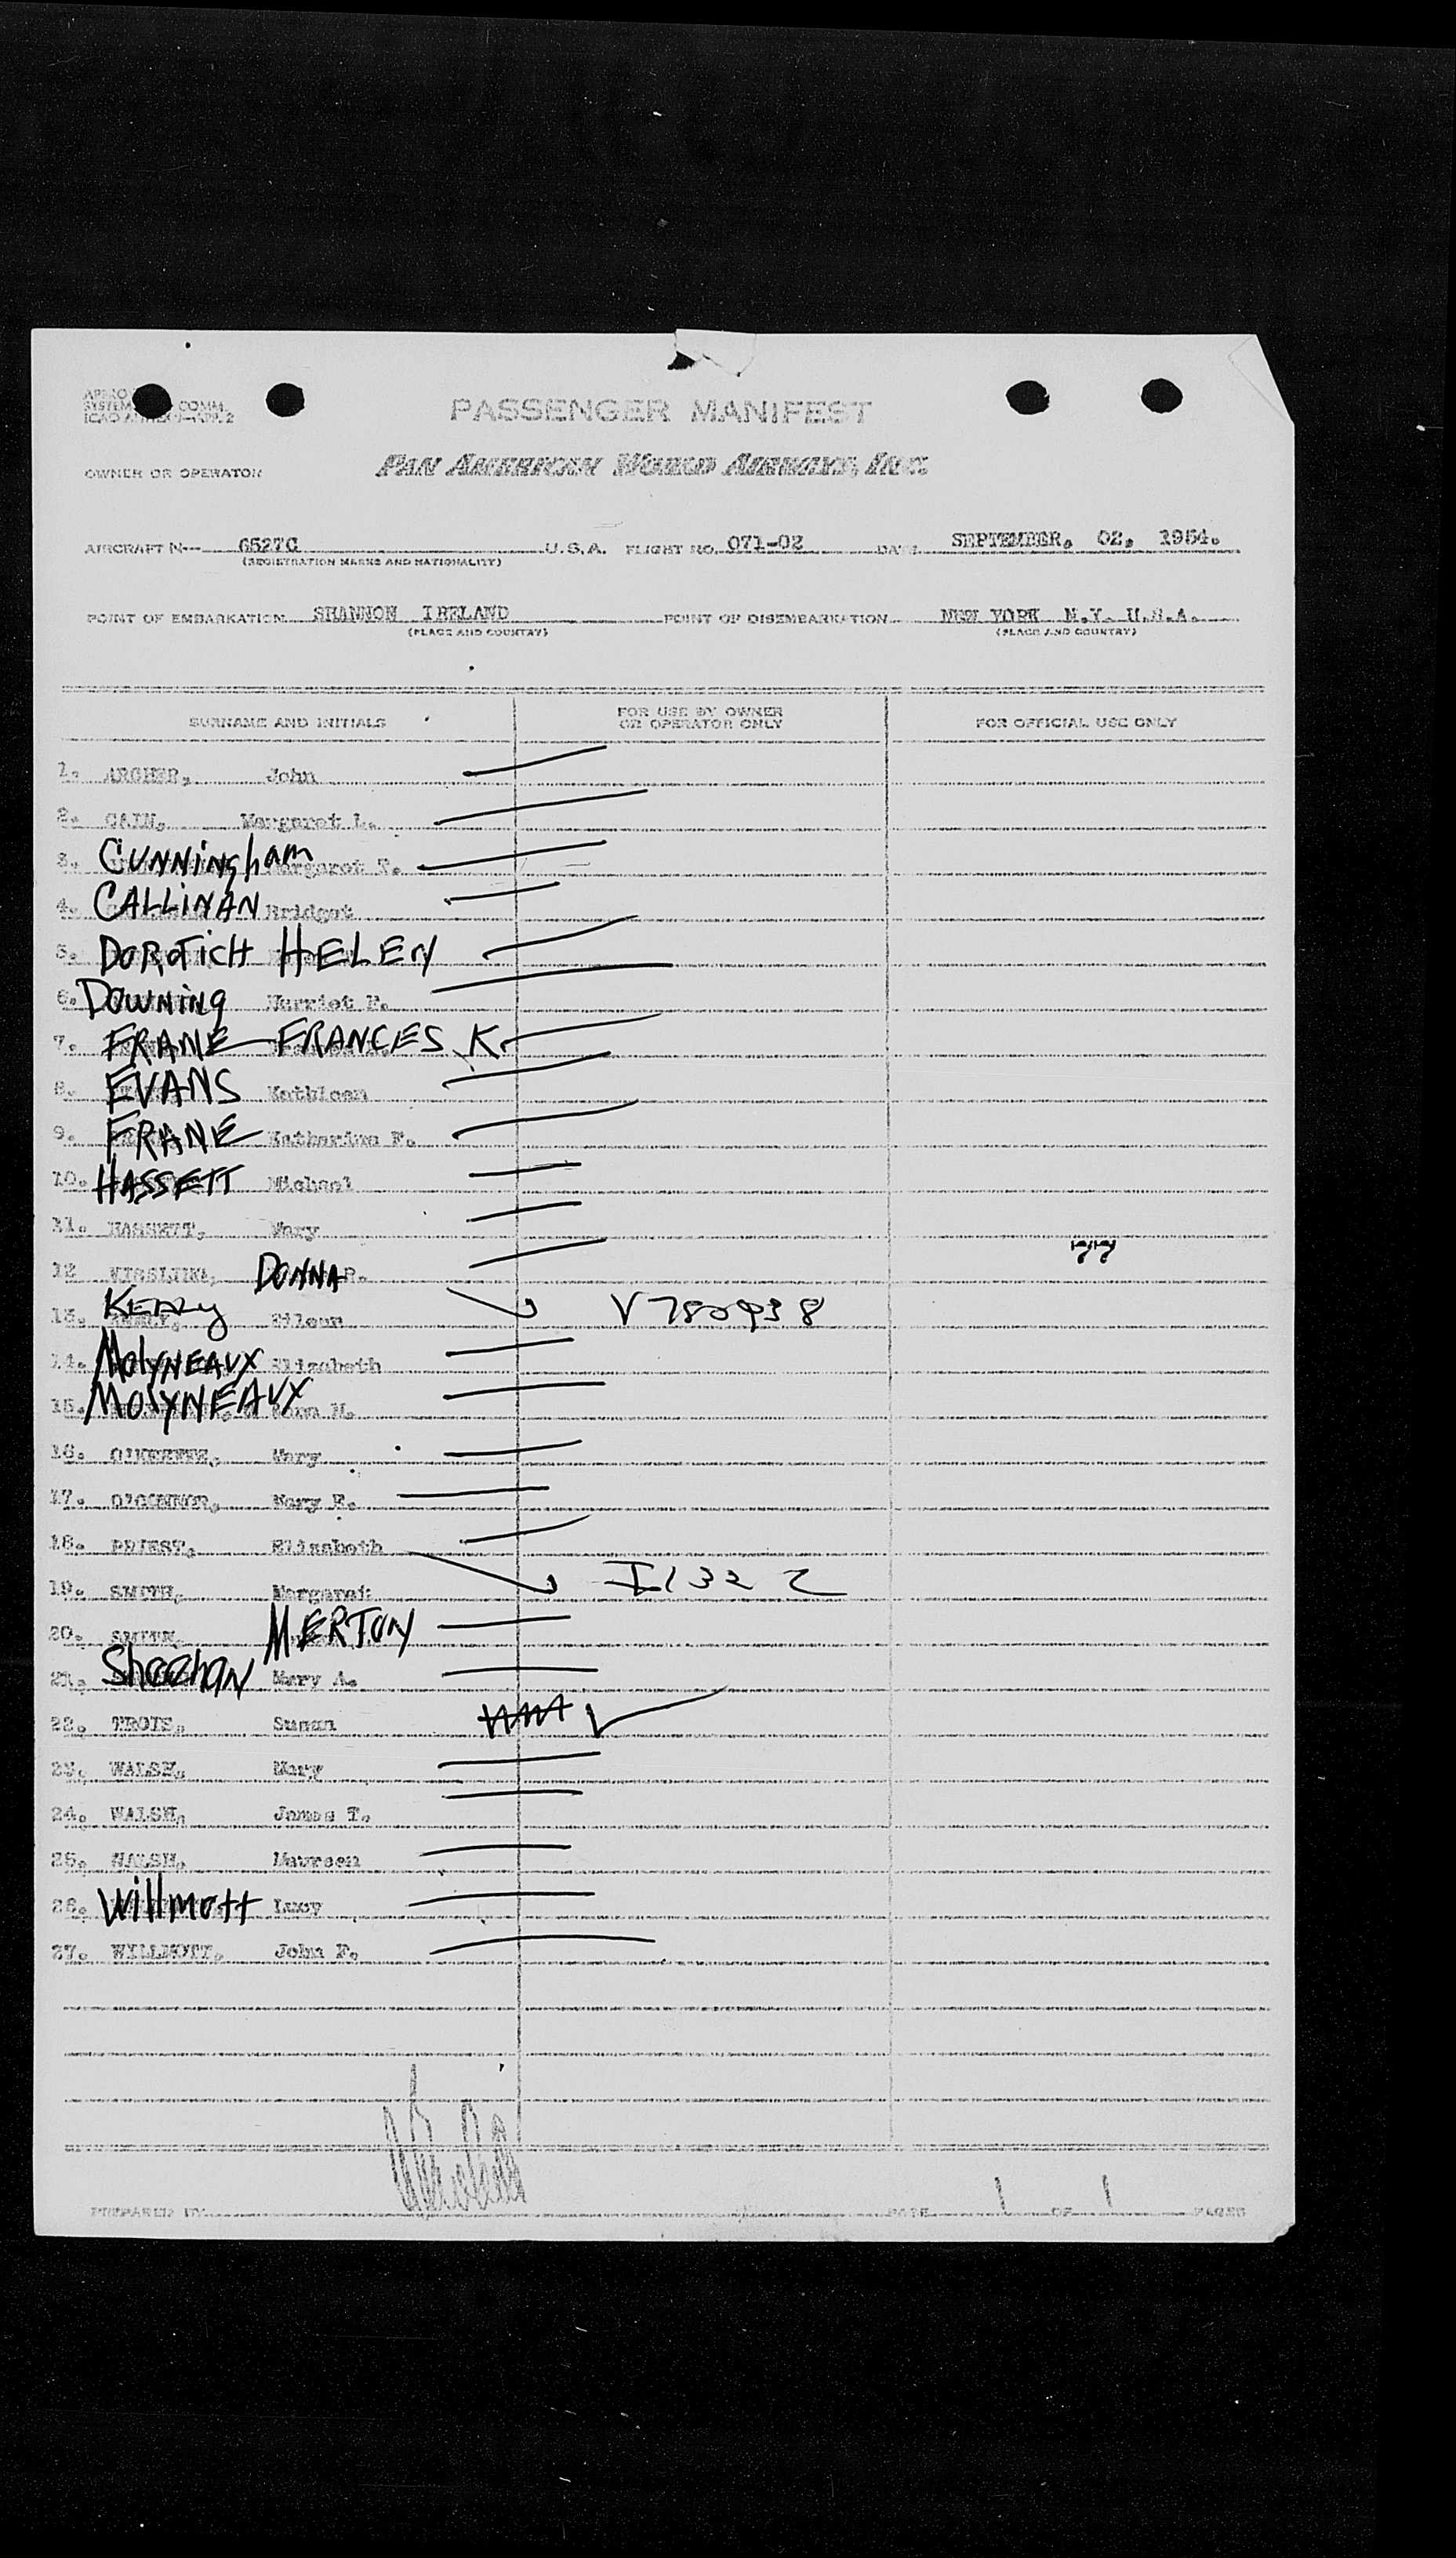 PASSENGER MANIFEST
OWNER OR OPERATOR PAN AMERICAN WORLD AIRWAYS, INC.
AIRCRAFT N-- 6527C U.S.A. FLIGHT NO. 071-02 DATE SEPTEMBER, 02, 1954.
(REGISTRATION MARKS AND NATIONALITY)
POINT OF EMBARKATION SHANNON IRELAND POINT OF DISEMBARKATION NEW YORK N.Y. U.S.A.
(PLACE AND COUNTRY) (PLACE AND COUNTRY)
SURNAME AND INITIALS FOR USE BY OWNER OR OPERATOR ONLY FOR OFFICIAL USE ONLY
1. ARCHER, John
2. CAIN, Margaret L.
3. Cunningham Margaret T.
4. CALLINAN Bridget
5. DOROTICH HELEN
6. Downing Harriet
7. FRANE FRANCES K.
8. EVANS Kathleen
9. FRANE Katharine F.
10. HASSETT Michael
11. HASSETT, Mary
12 DONNA 77
13. Kealy V782938
14. Molyneaux Elizabeth
15. MOLYNEAUX
16. O'KEEFFE, Mary
17. O'CONNOR, Mary E.
18. PRIEST, Elizabeth
19. SMITH, Margaret I1322
20. SMITH MERTON
21. Sheehan Mary A.
22. TROTE, Susan
23. WALSH, Mary
24. WALSH, James T.
25. WALSH, Maureen
26. Willmott Lucy
27. WILLMOTT, John F.
PREPARED BY PAGE 1 OF 1 PAGES